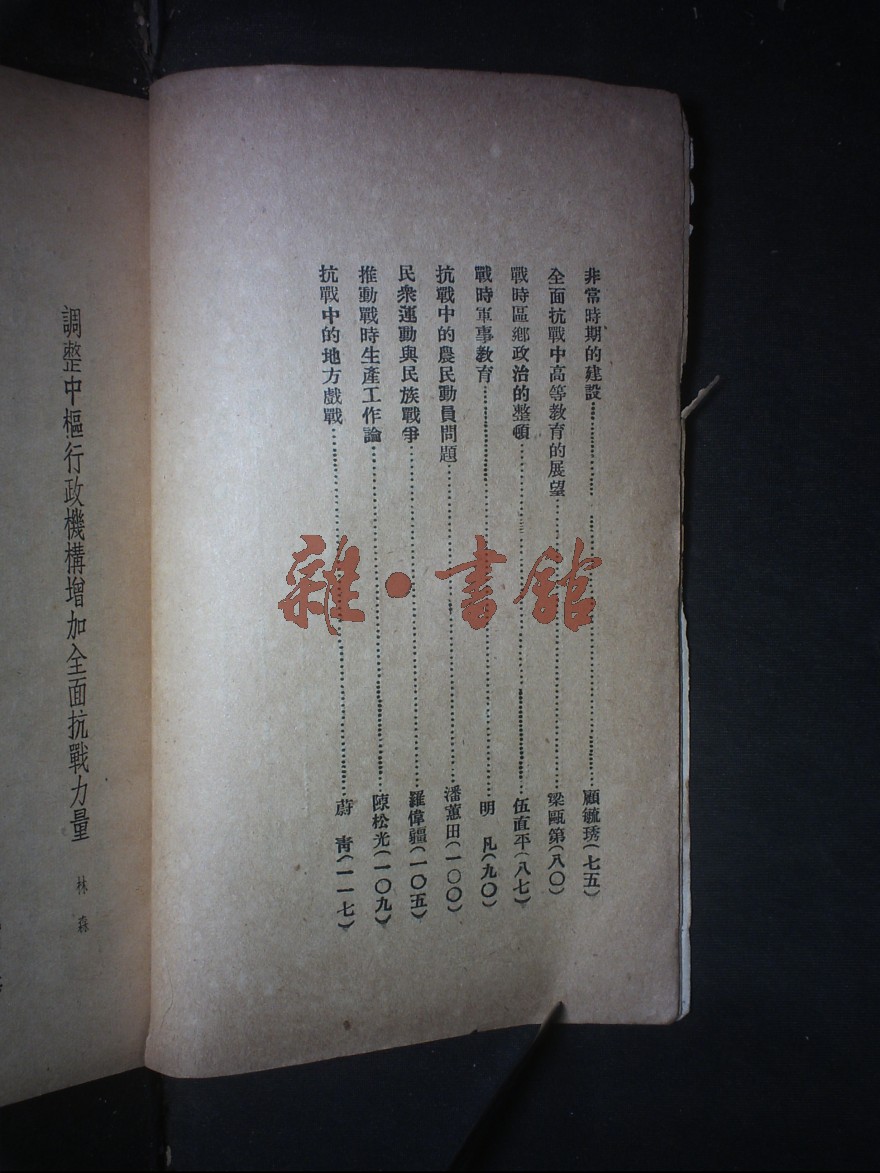 非常時期的建設…………顧毓琇(七五)
全面抗戰中高等教育的展望…………梁甌第(八〇)
戰時區鄉政治的整頓…………伍直平(八七)
戰時軍事教育…………明 凡(九〇)
抗戰中的農民動員問題…………潘蕙田(一〇〇)
民衆運動與民族戰爭…………羅偉疆(一〇五)
推動戰時生產工作論…………陳松光(一〇九)
抗戰中的地方戲戰…………蔚 青(一一七)
調整中樞行政機構增加全面抗戰力量 林森
雜·書館